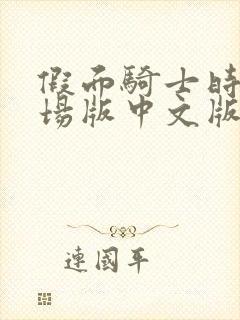 假而騎士時
場版中文版
連國平